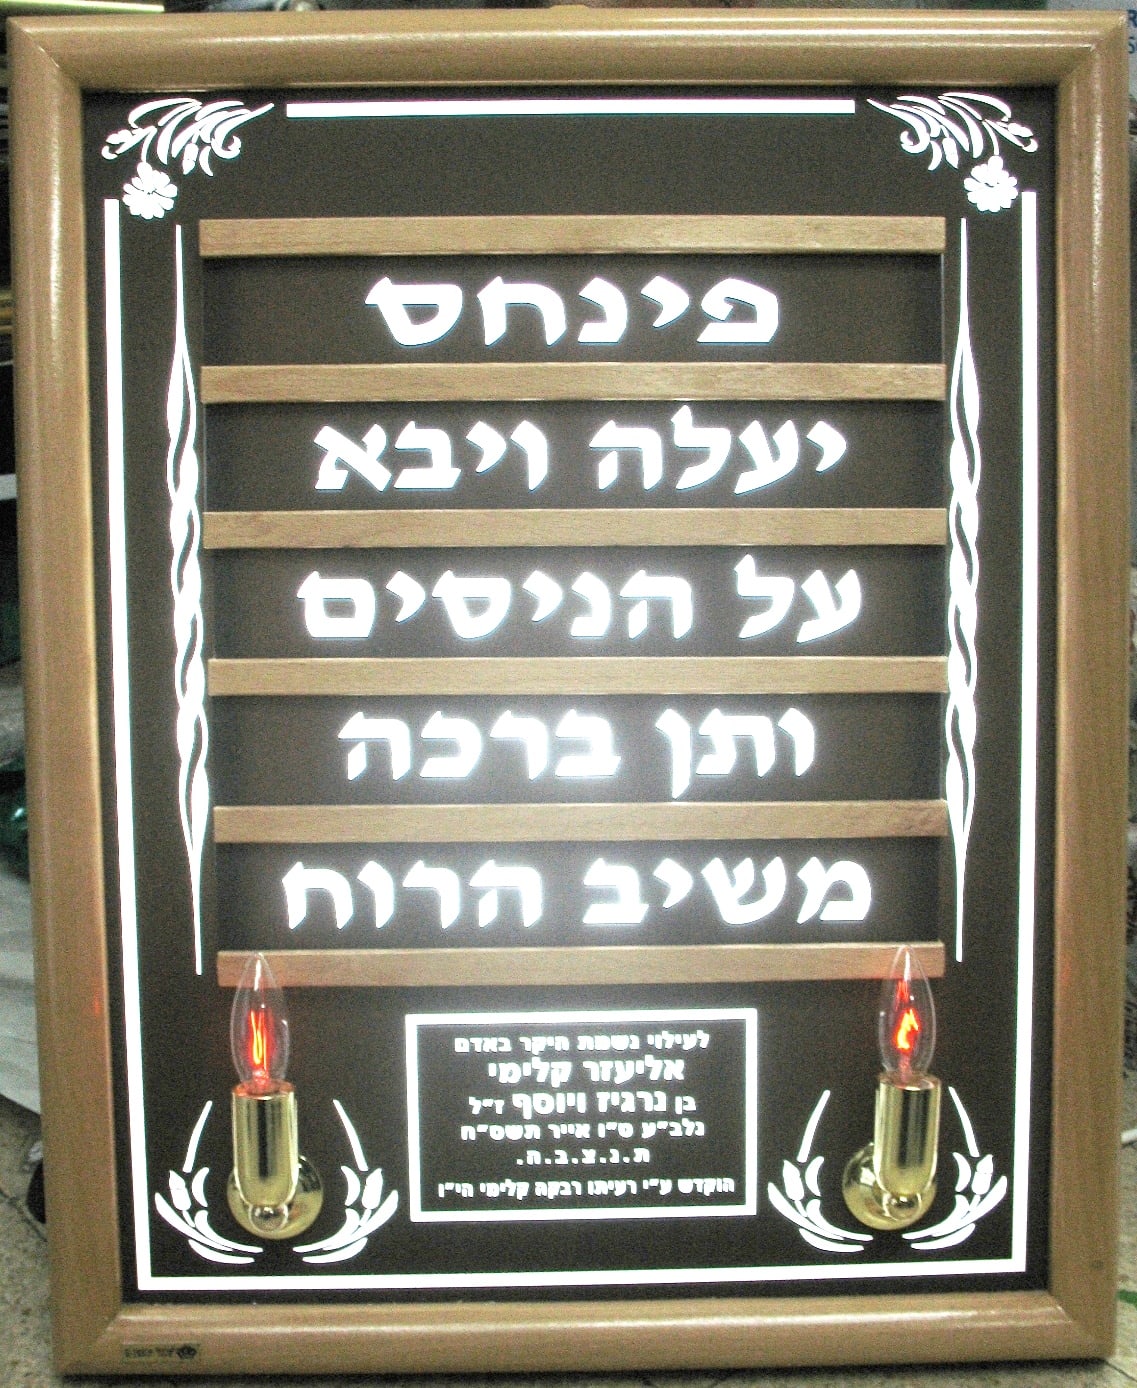 פינחס
יעלה ויבא
על הניסים
ותן ברכה
משיב הרוח
לעילוי נשמת היקר באדם
אליעזר קלימי
בן נרגיז ויוסף ז״ל
נלב״ע ט״ו אייר תשס״ח
ת.נ.צ.ב.ה.
הוקדש ע״י רעיתו רבקה קלימי הי״ו